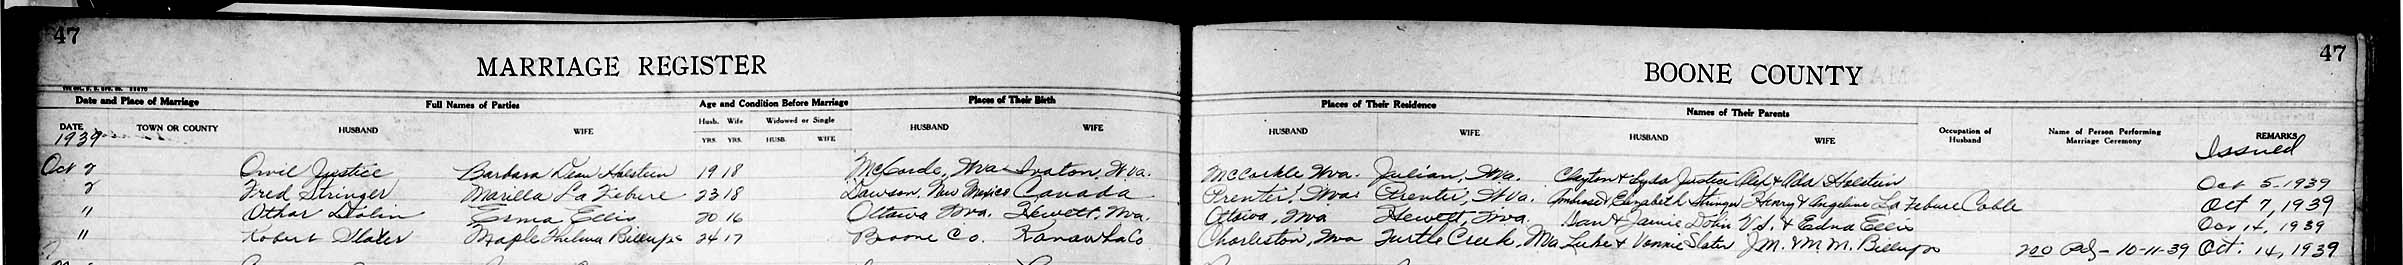 47
47
MARRIAGE REGISTER
BOONE COUNTY
Date and Place of Marriage Full Names of Parties Age and Condition Before Marriage Places of Their Birth Places of Their Residence Names of Their Parents
DATE TOWN OR COUNTY HUSBAND WIFE Husb. Wife Widowed or Single HUSBAND WIFE HUSBAND WIFE HUSBAND WIFE Occupation of Husband Name of Person Performing Marriage Ceremony REMARKS
1939 YRS. YRS. HUSB. WIFE Issued
Oct 2 Orvil Justice Barbara Dean Holstein 19 18 McCorcle, Wva. Ivaton, W.va. McCorkle Wva. Julian, Wva. Clayton & Lyda Justice & Ada Holstein Oct 5-1939
2 Fred Stringer Marilla La Febure 23 18 Dawson, New Mexico Canada Prenter, Wva. Prenter, W.va. Ambrose & Elizabeth Stringer Henry & Angeline La Febure Cable Oct 7, 1939
" Othar Dolin Esma Ellis 20 16 Ottawa Wva. Hewett, Wva. Ottawa, Wva Hewett, Wva. Dan & Janie Dolin V.S. & Edna Ellis Oct 14, 1939
" Robert Slater Maple Thelma Billups 24 17 Boone Co. Kanawha Co Charleston, Wva Turtle Creek, Wva Luke & Vonnie Slater J.M. & M.M. Billups 10-11-39 Oct. 14, 1939